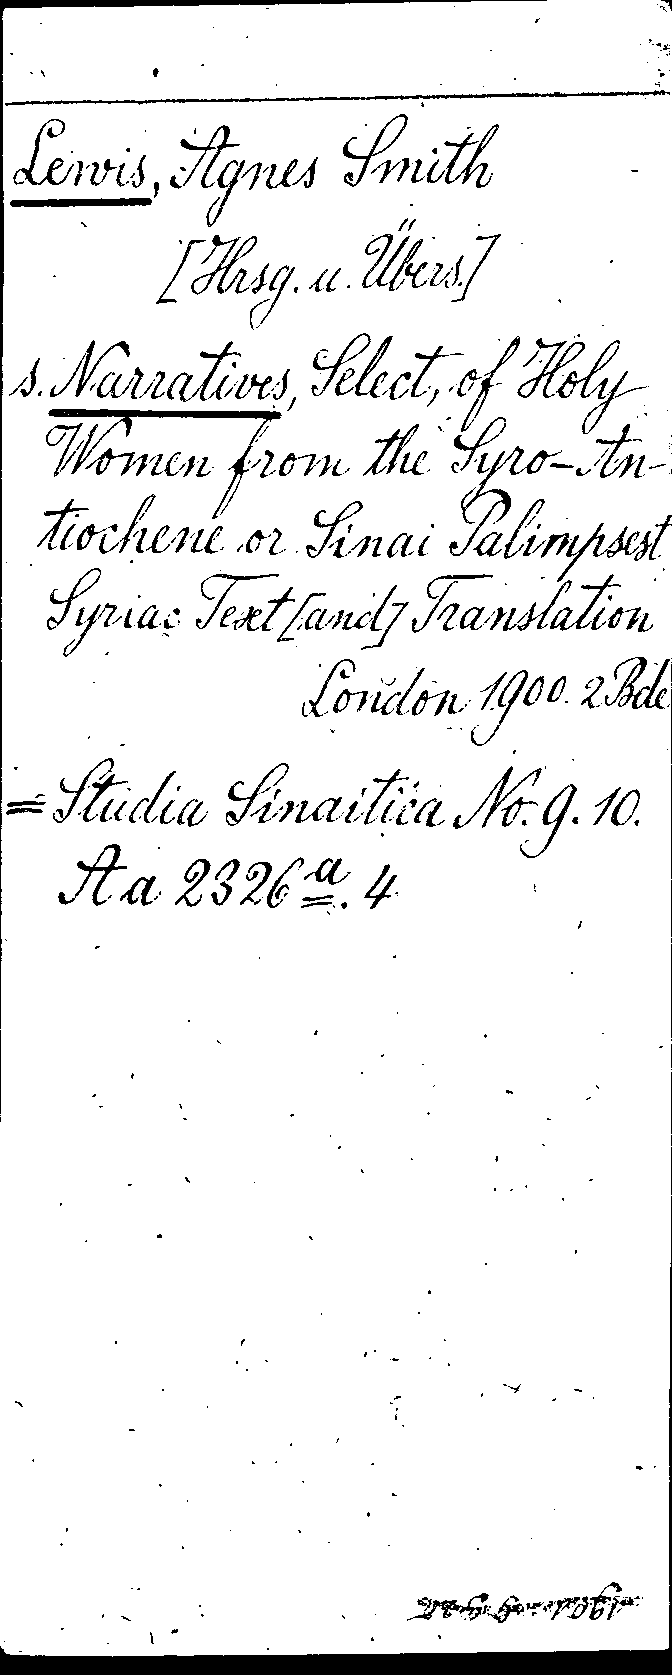 Lewis, Agnes Smith
[Hrsg. u. Übers.]
s. Narratives, Select, of Holy
Women from the Syro-An-
tiochene or Sinai Palimpsest
Syriac Text [and] Translation
London 1900. 2 Bde
= Studia Sinaitica No. 9. 10.
Aa 2326a. 4